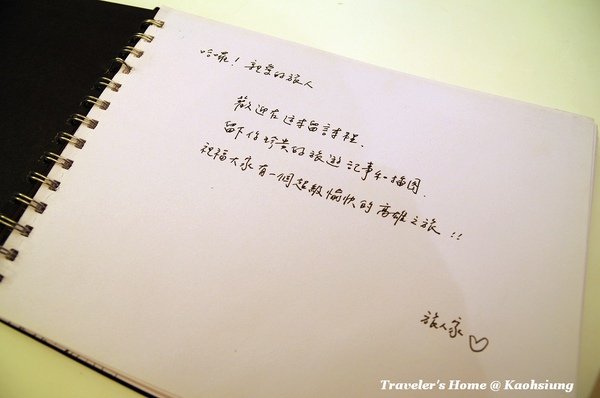 哈囉! 親愛的旅人
歡迎在這本留言本裡,
留下你珍貴的旅遊記事和插圖.
祝福大家有一個超級愉快的高雄之旅 !!
旅人家
Traveler's Home @ Kaohsiung